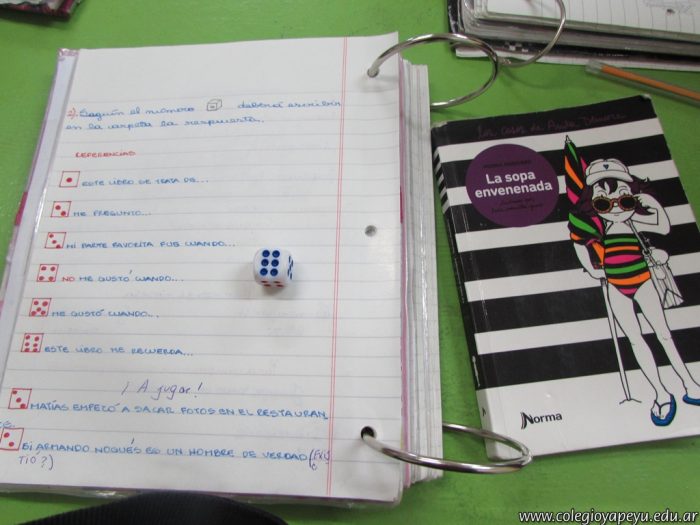 2). Según el número deberá escribir
en la carpeta la respuesta.
REFERENCIAS
ESTE LIBRO SE TRATA DE...
ME PREGUNTO...
MI PARTE FAVORITA FUE CUANDO...
NO ME GUSTÓ CUANDO...
ME GUSTÓ CUANDO...
ESTE LIBRO ME RECUERDA...
¡A jugar!
MATÍAS EMPEZÓ A SACAR FOTOS EN EL RESTAURAN.
SI ARMANDO NOGUÉS ES UN HOMBRE DE VERDAD (¿EXIS
TIÓ?)
La sopa
envenenada
Norma
www.colegioyapeyu.edu.ar